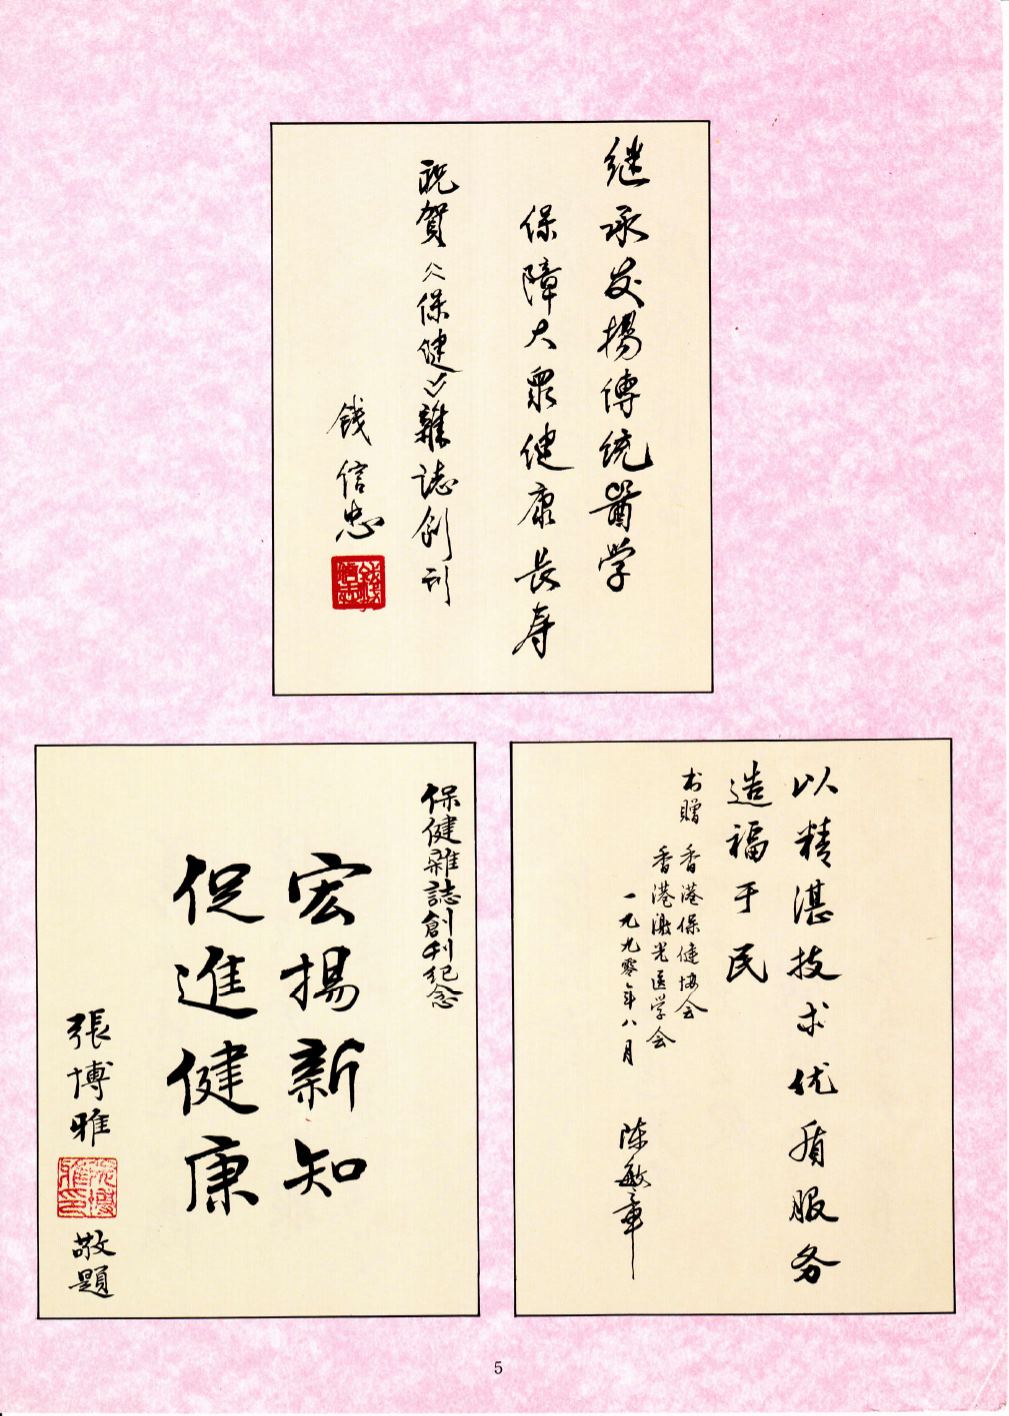 继承发揚傳统醫学
保障大眾健康長寿
祝賀《保健》雜誌創刊
錢信忠
保健雜誌創刊紀念
宏揚新知
促進健康
張博雅
敬題
以精湛技术优质服务
造福于民
书贈 香港保健协会
香港激光医学会
一九九零年八月
陈敏章
5